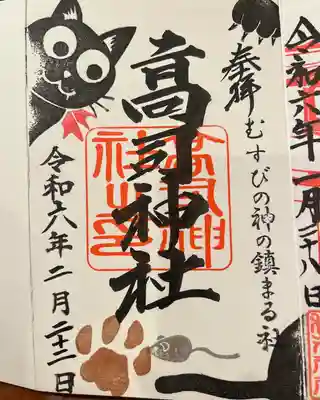 令和六年一月二十八日
奉拝
むすびの神の鎮まる社
高司神社
令和六年二月二十二日